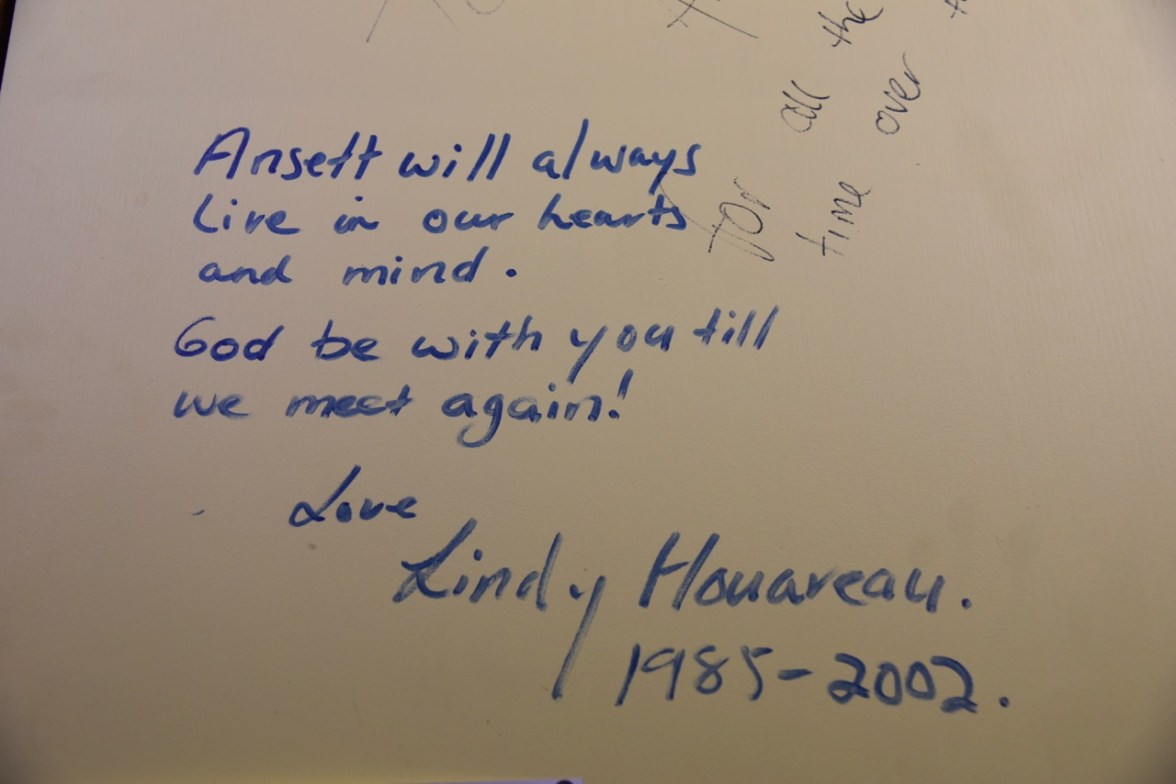 Ansett will always
Live in our hearts
and mind.
God be with you till
we meet again!
Love
Lindy Houareau.
1985-2002.
for all the
time over